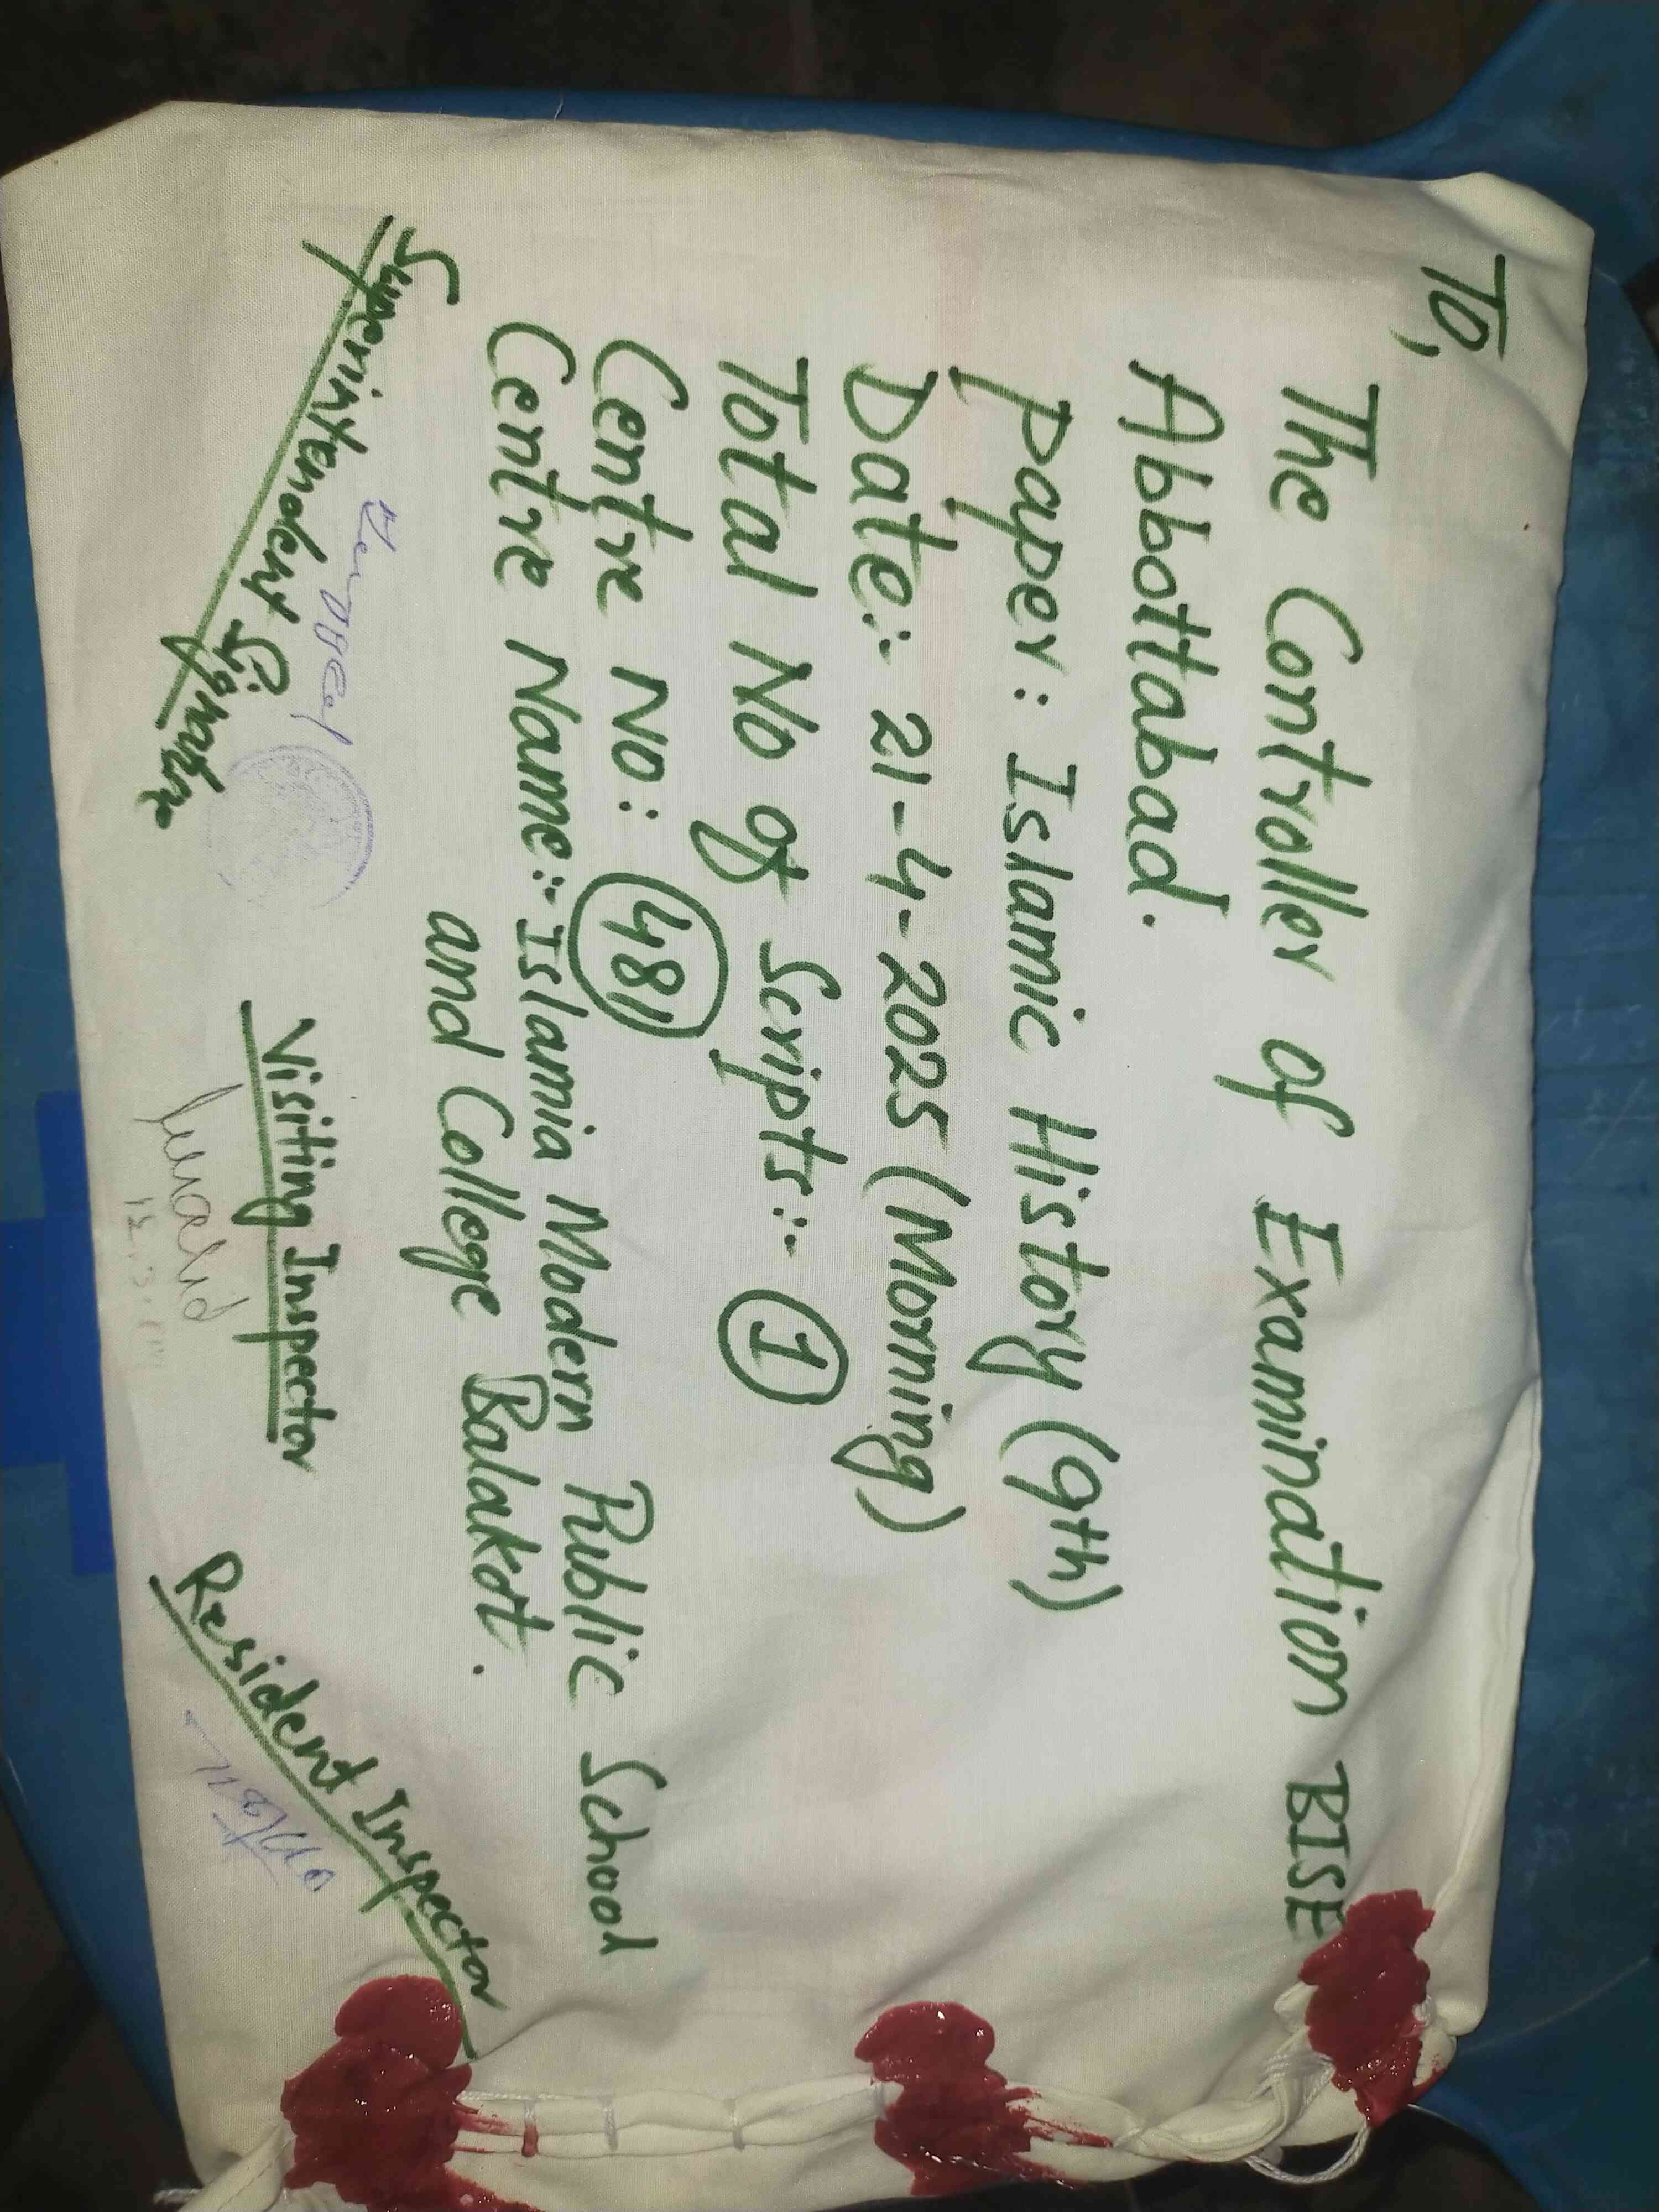 To,
The Controller of Examination BISE
Abbottabad.
paper: Islamic History (9th)
Date:- 21-4-2025 (Morning)
Total No of Scripts:- 1
Centre No: 481
Centre Name:- Islamia Modern Public School
and College Balakot.
Superintendent Signature
Visiting Inspector
Resident Inspector